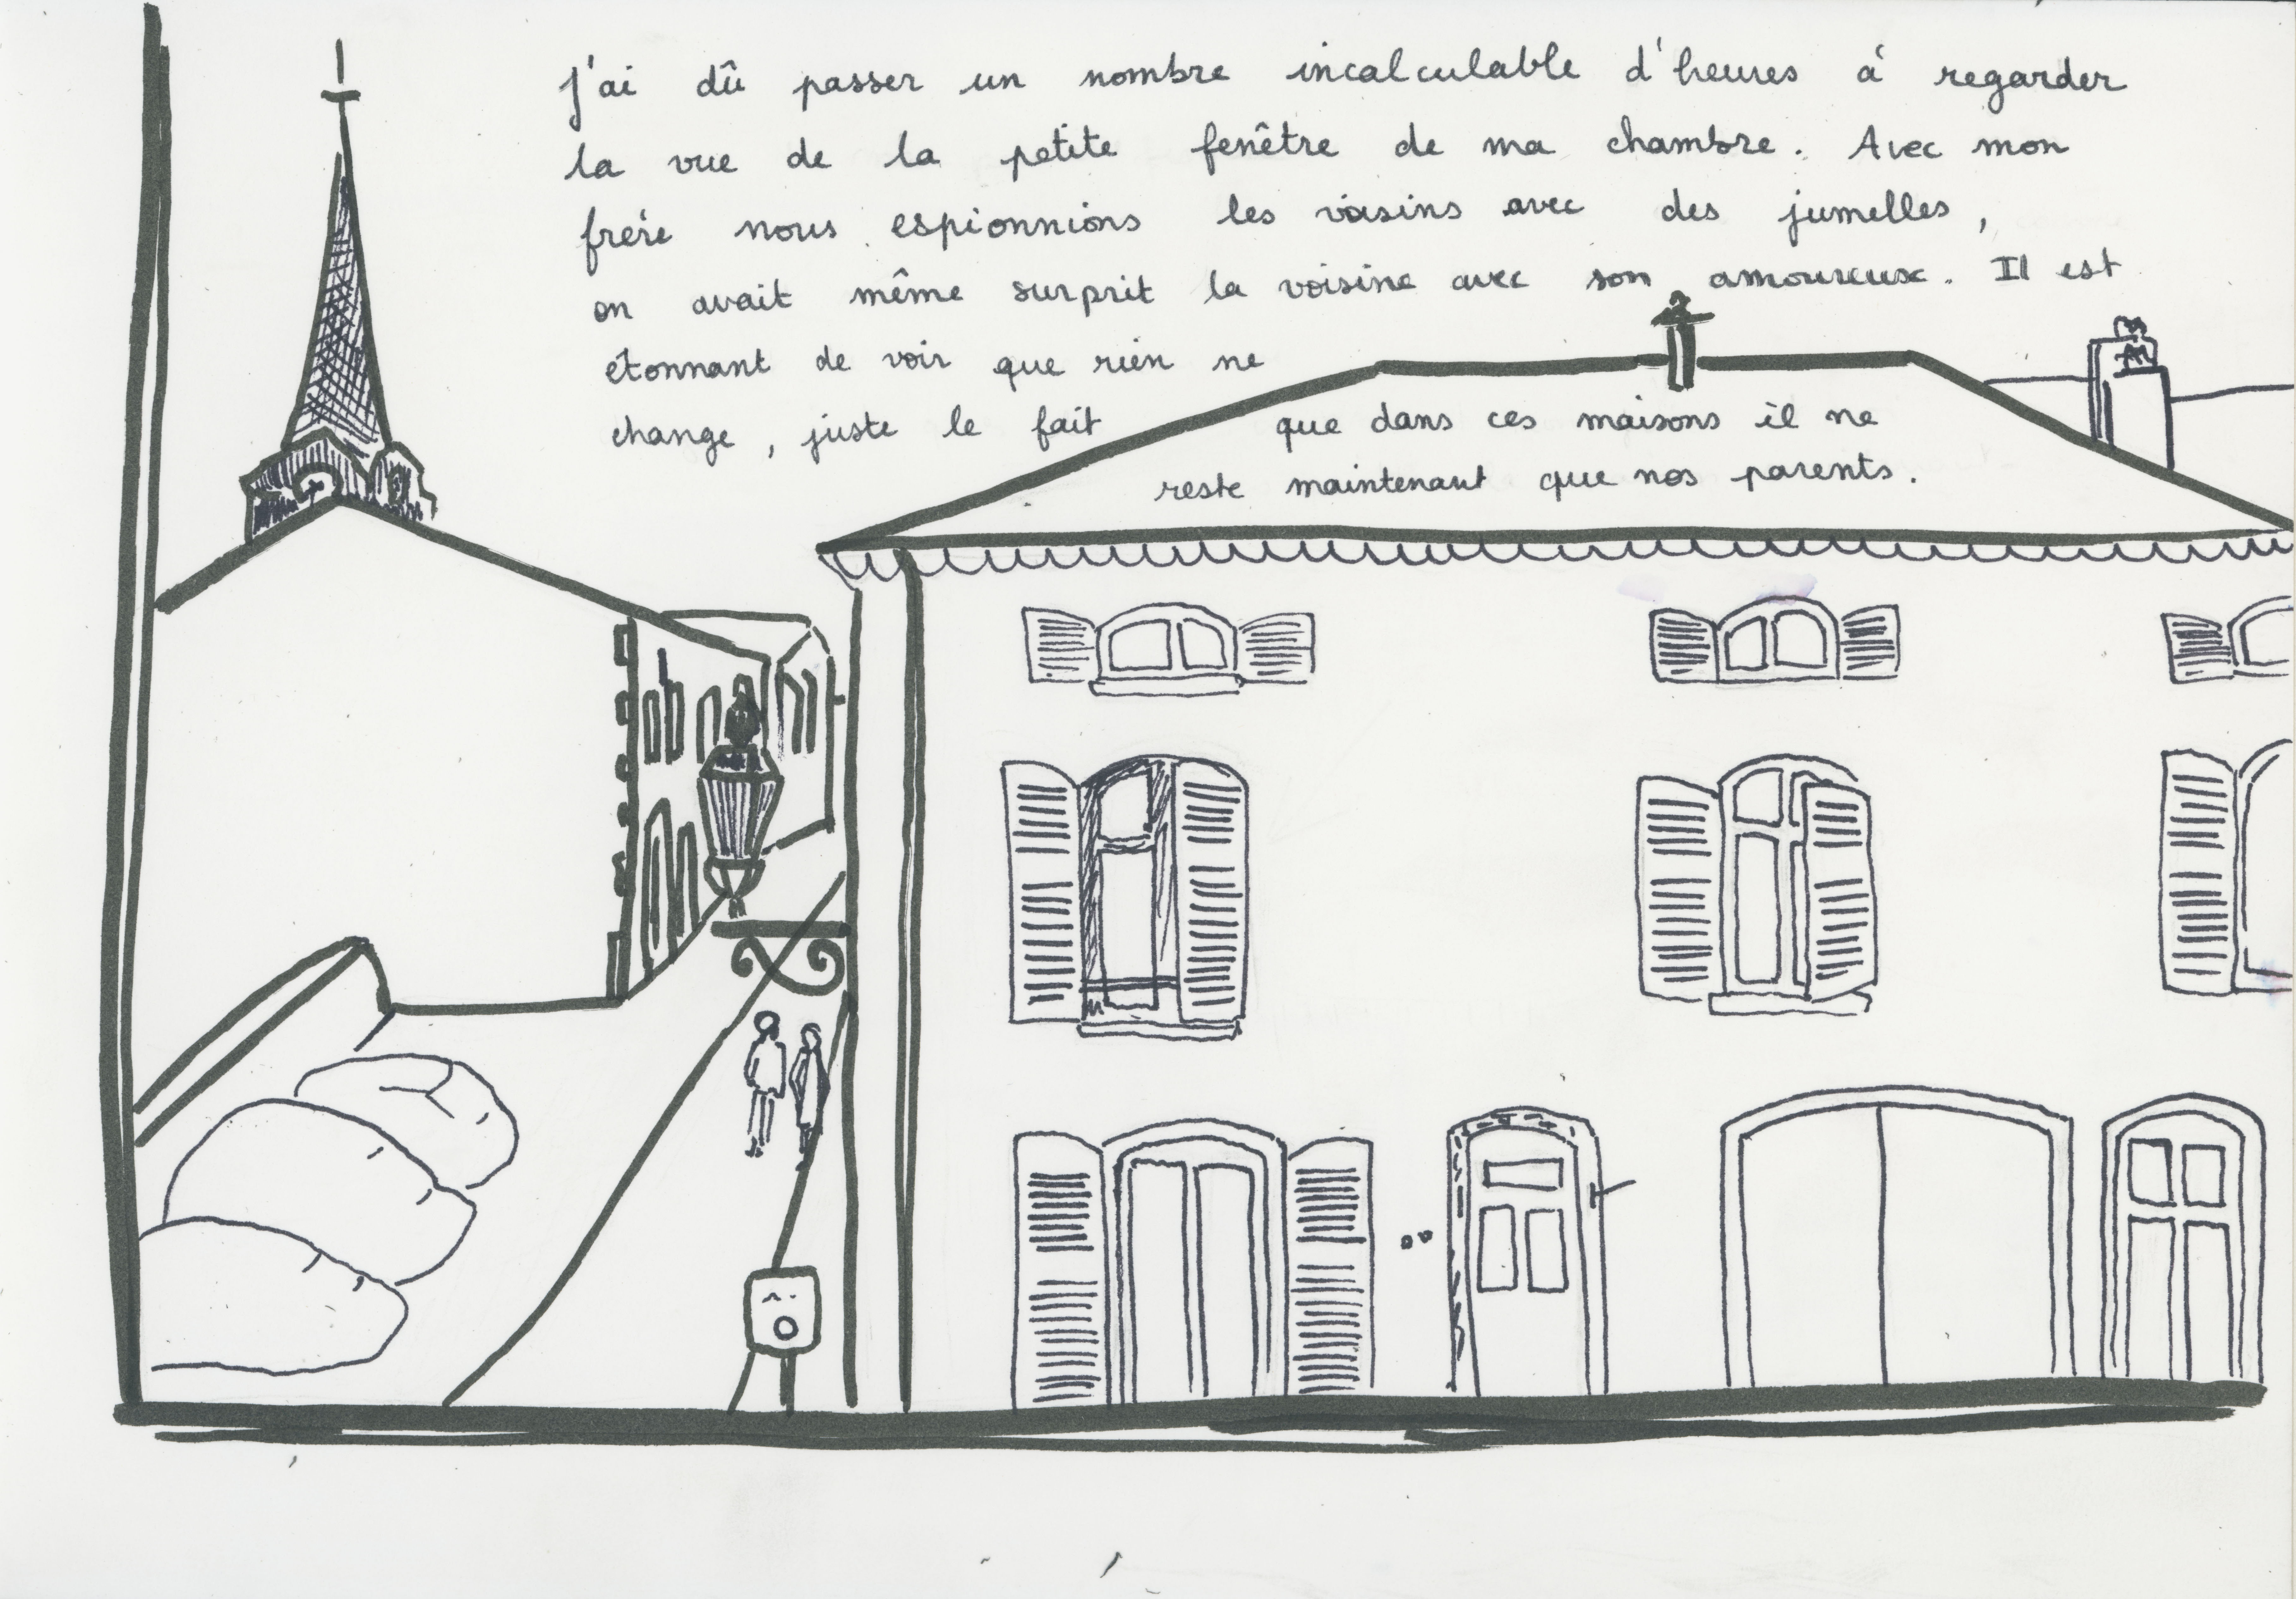 J'ai dû passer un nombre incalculable d'heures à regarder
la vue de la petite fenêtre de ma chambre. Avec mon
frère nous espionnions les voisins avec des jumelles,
on avait même surprit la voisine avec son amoureuse. Il est
étonnant de voir que rien ne
change, juste le fait que dans ces maisons il ne
reste maintenant que nos parents.